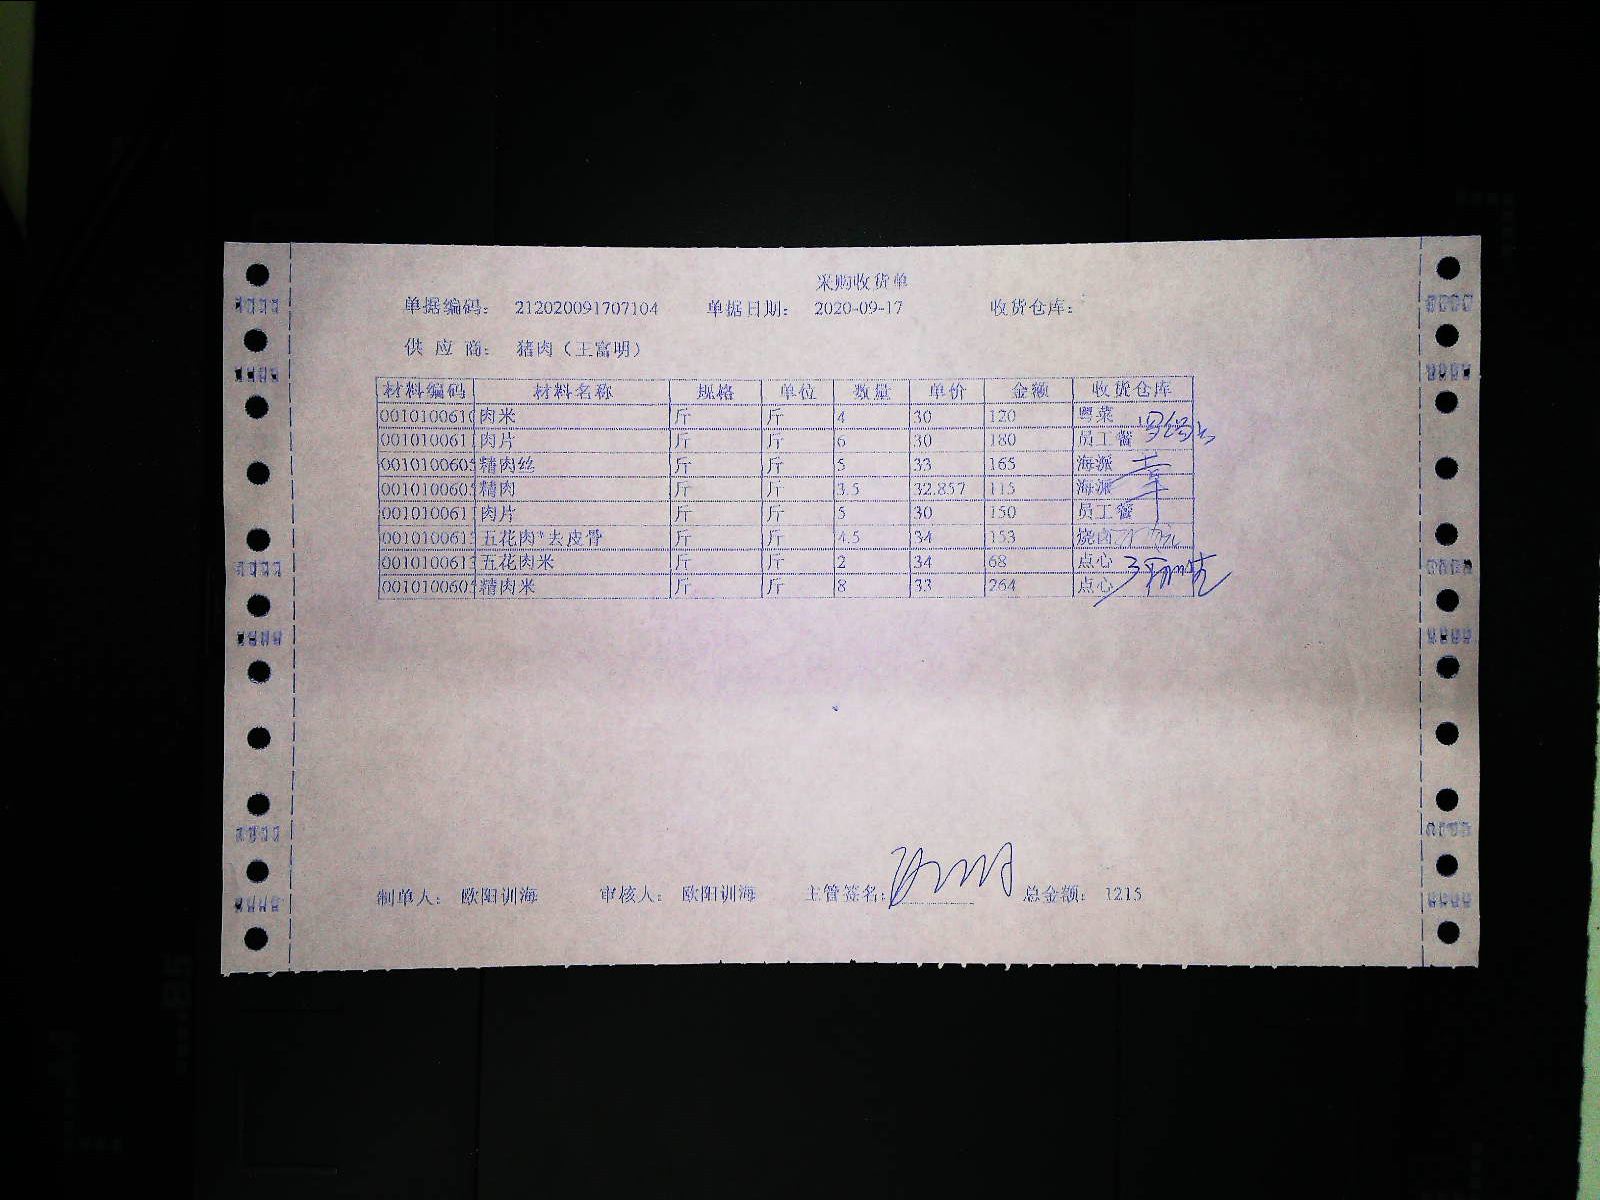 采购收货单
单据编码: 212020091707104 单据日期: 2020-09-17 收货仓库:
供应商: 猪肉（王富明）
材料编码 材料名称 规格 单位 数量 单价 金额 收货仓库
0010100610 肉米 斤 斤 4 30 120 粤菜
001010061 肉片 斤 斤 6 30 180 员工餐
0010100605 精肉丝 斤 斤 5 33 165 海派
001010060 精肉 斤 斤 3.5 32.857 115 海派
001010061 肉片 斤 斤 5 30 150 员工餐
001010061 五花肉*去皮骨 斤 斤 4.5 34 153 烧卤
001010061 五花肉米 斤 斤 2 34 68 点心
001010060 精肉米 斤 斤 8 33 264 点心
制单人: 欧阳训海 审核人: 欧阳训海 主管签名: 总金额: 1215